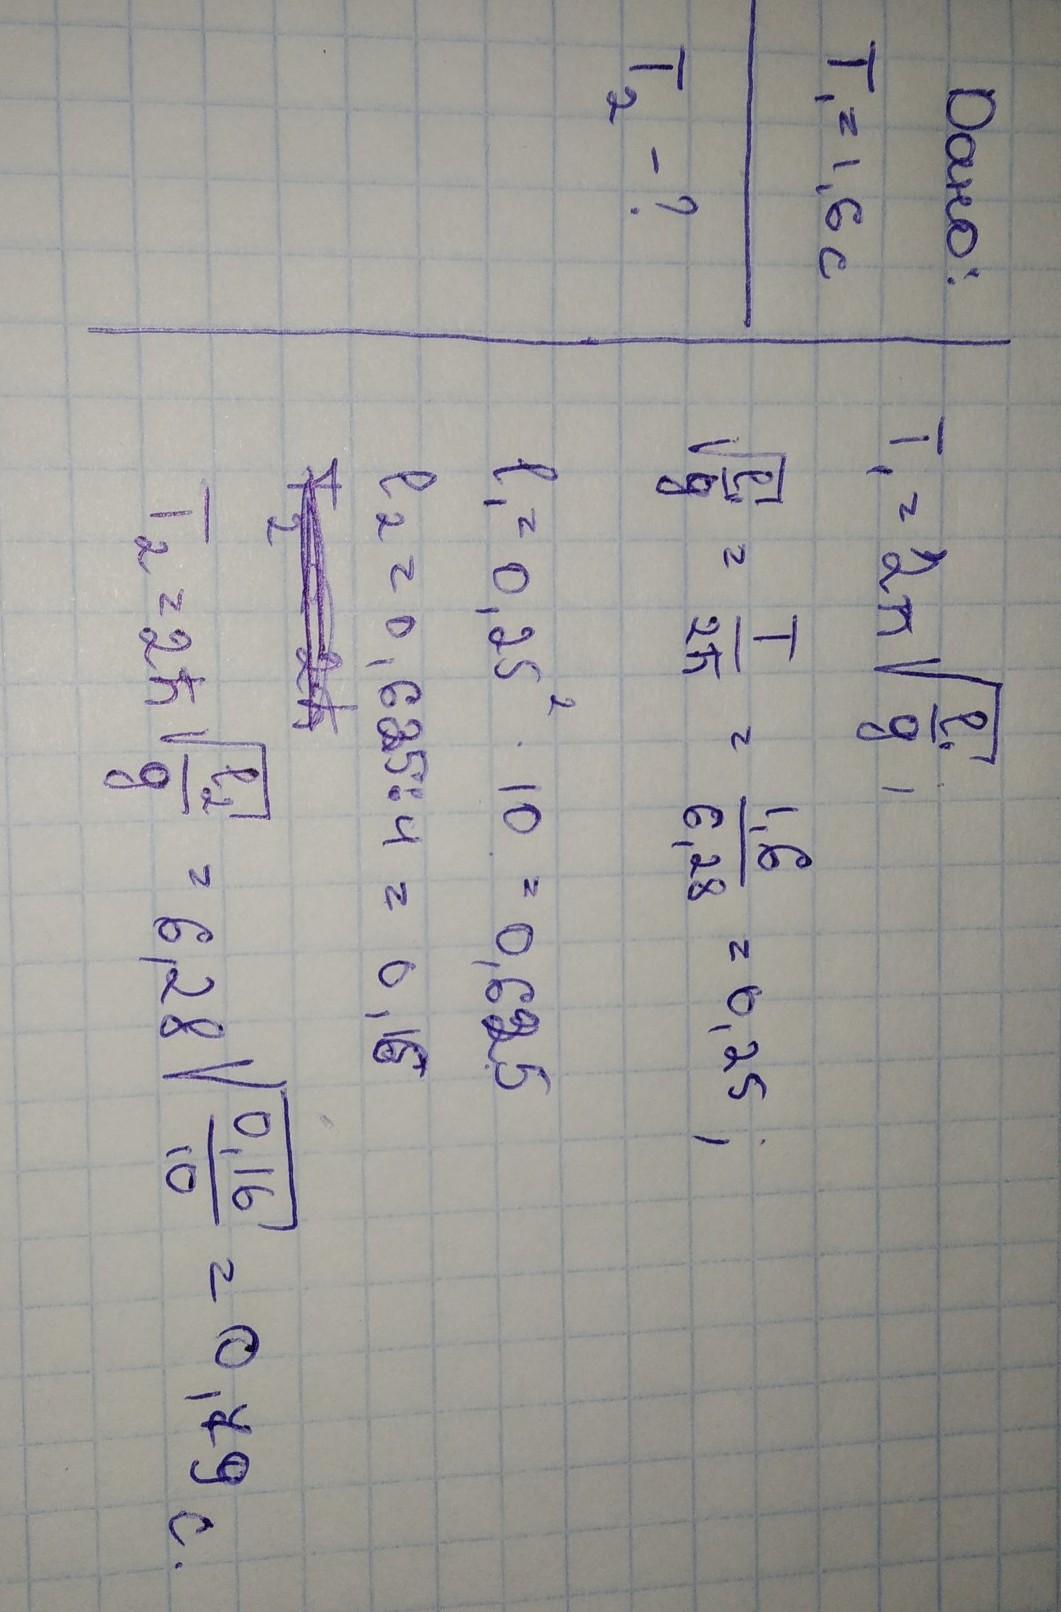 Дано:
T₁ = 1,6 c
T₂ - ?
T₁ = 2π√(l₁/g) ;
√(l₁/g) = T/2π = 1,6/6,28 = 0,25 ;
l₁ = 0,25² · 10 = 0,625
l₂ = 0,625 : 4 = 0,16
T₂ = 2π√(l₂/g) = 6,28√(0,16/10) = 0,79 c.